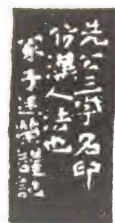 先公三字名印
仿漢人法也
家子
謹記